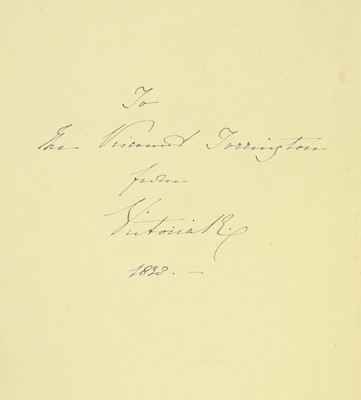 To
The Viscount Torrington
from
Victoria R.
1838. –